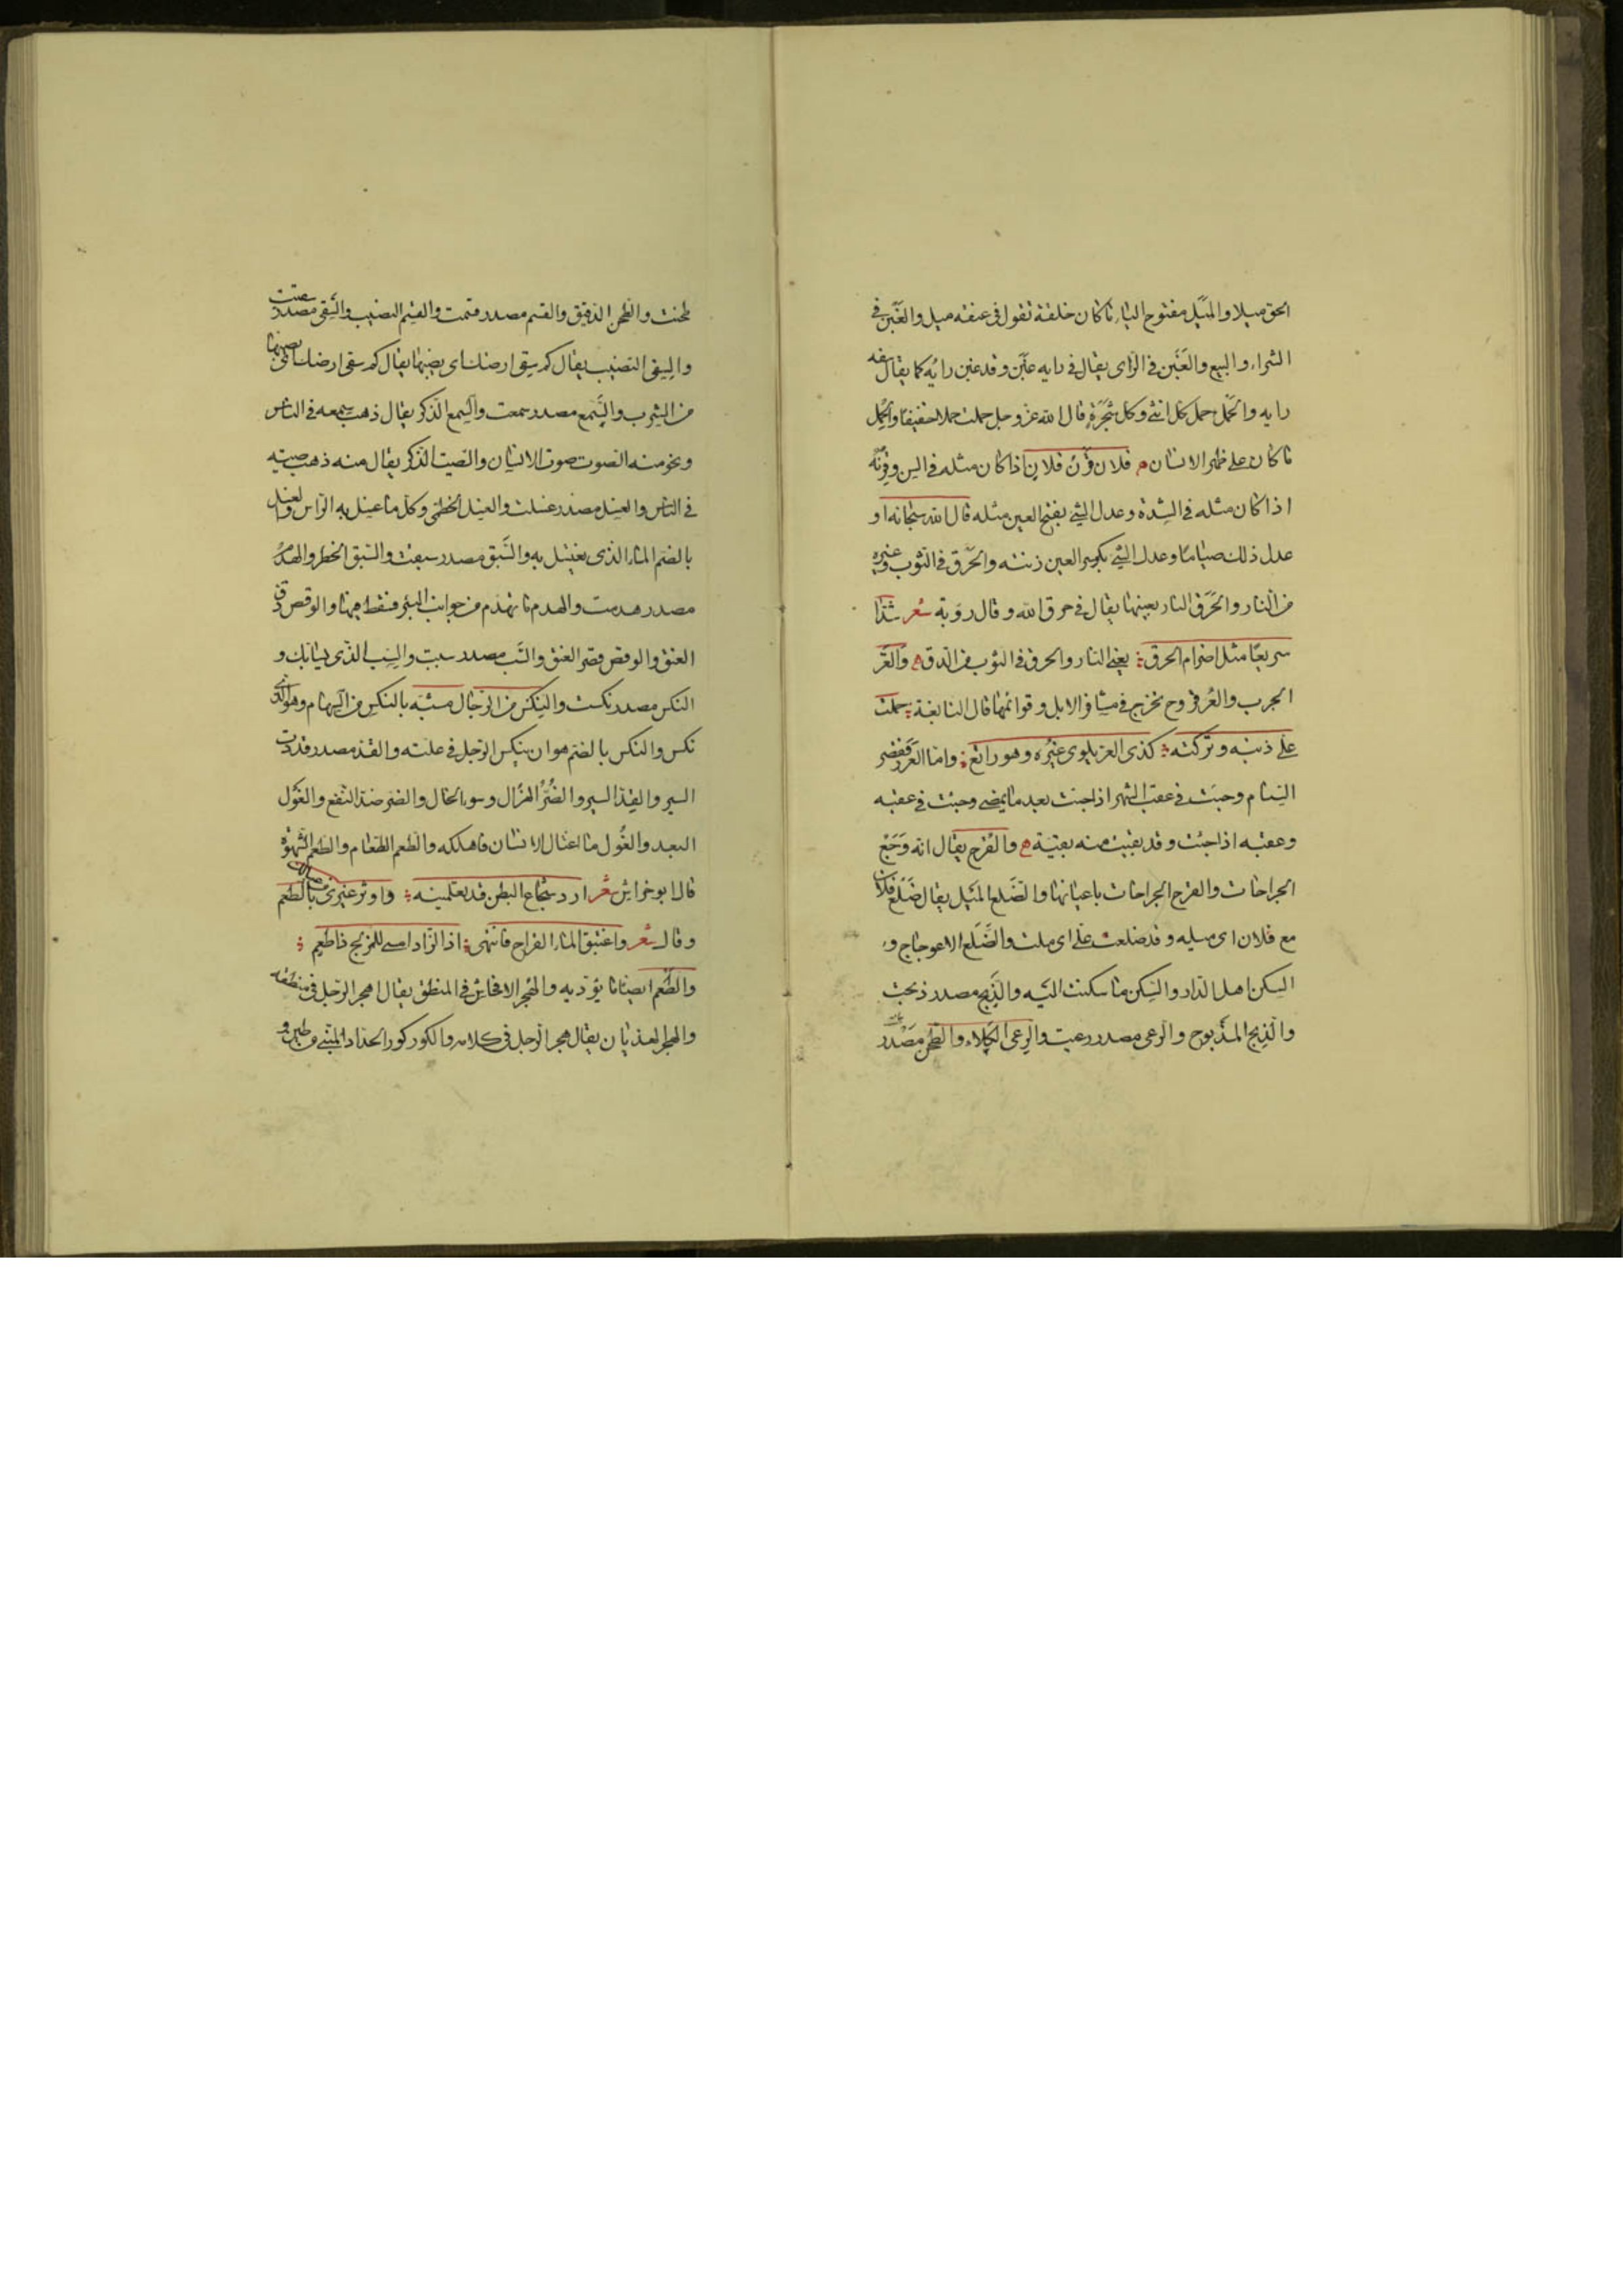 الحق ميلا والميَل مفتوح الياء ما كان خلقة تقول فى عنقه ميل والغَبْن فى
الشراء والبيع والغَبَن فى الرّاى يقال فى رايه غَبَن وقد غبن رايَه كما يقال سفه
رايه والحَمْل حمل كل انثى وكل شجَرَةٍ قال الله عز وجل حملت حملا خفيفا والحِمْل
ما كان على ظهر الانسان فلان قَرْن فلان اذا كان مثله فى السن وقِرنُه
اذا كان مثله فى الشدة وعدل الشئ بفتح العين مثله قال الله سبحانه او
عدل ذلك صياما وعدل الشئ بكسر العين زنته والحَرَق فى الثوب وغيره
من النار والحَرَق النار بعينها يقال فى حرق الله وقال روبة شعر شدّا
سريعًا مثل اضرام الحرق يعنى النار والحرق فى الثوب من الدق والعَرّ
الجرب والعُر قروح تخرج فى مشافر الابل وقوائمها قال النابغة حملت
على ذنبه وتركته كذى العر يكوى غيرُه وهو راتع واما العَرَر فقصر
السنام وجئت فى عقب الشهر اذا جئت بعد ما يمضى وجئت فى عقبه
وعقبه اذا جئت وقد بقيت منه بقيّة والقُرح يقال انه وَجَعُ
الجراحات والقرح الجراحات باعيانها والضَلع الميَل يقال ضَلْع فلان
مع فلان اى ميله وقد ضلعت على اى ملت والضَّلَع الاعوجاج و
السكن اهل الدار والسكن ما سكنت اليه والذَبح مصدر ذبحت
والذِبح المذبوح والرعى مصدر رعيت والرِعى الكلاء والطحن مصْدر
طحنت والطِحن الدقيق والقسم مصدر قسمت والقِسم النصيب والسَقى مصدر سقيت
والسِقى النصيب يقال كم سِقى ارضك اى نصيبها يقال كم سقى ارضك اى نصيبها
من الشرب والسَّمع مصدر سمعت والسِمع الذكر يقال ذهب سِمعه فى الناس
ونحو منه الصوت صوت الانسان والصيت الذكر يقال منه ذهب صيته
فى الناس والغسل مصدر غسلت والغِسل الخطمى وكل ما غسل به الراس والغسل
بالضم الماء الذى يغتسل به والسَّبق مصدر سبقت والسَبق الخطر والهدْمُ
مصدر هدمت والهدم ما تهدّم من جوانب البئر فسقط فيها والوقص دق
العنق والوقص قصر العنق والسَّب مصدر سببت والسِب الذى يسابك و
النكس مصدر نكست والنِكس من الرّجال مشبّه بالنكس من السِهام وهو الذى
نكس والنكس بالضم هو ان ينكس الرّجل فى علته والقد مصدر قددت
السير والقِدّ السير والضُرُّ الهزال وسوء الحال والضَر ضد النفع والغَوْل
البعد والغُول ما اغتال الانسان فاهلكه والطعم الطعام والطَعم الشهوة
قال ابو خراش شعر ارد شجاع البطن قد تعلمينه واوثر غيرى من عيالك بالطُعم
وقال شعر واغتبق الماء القراح فانتهى اذا الزاد امسى للمزلج ذا طعم
والطَّعم ايضا ما يؤديه والهُجر الافحاش فى المنطق يقال اهجر الرّجل فى منطقه
والهجر الهذيان يقال هجر الرّجل فى كلامه والكور كور الحداد المبنى من طين و